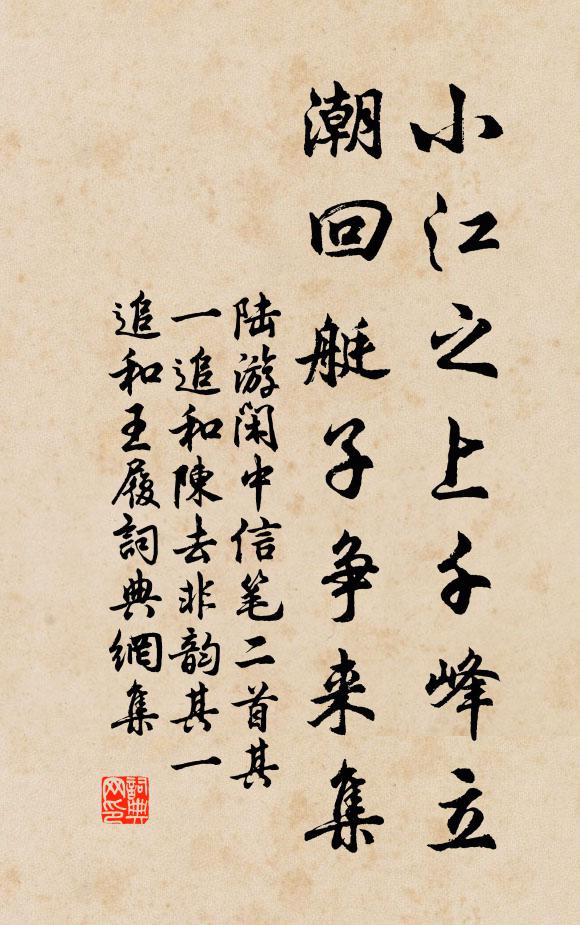 小江之上千峰立
潮回艇子争来集
陆游闲中信笔二首其
一追和陳去非韵其一
追和王履詞典網集
詞典
网印